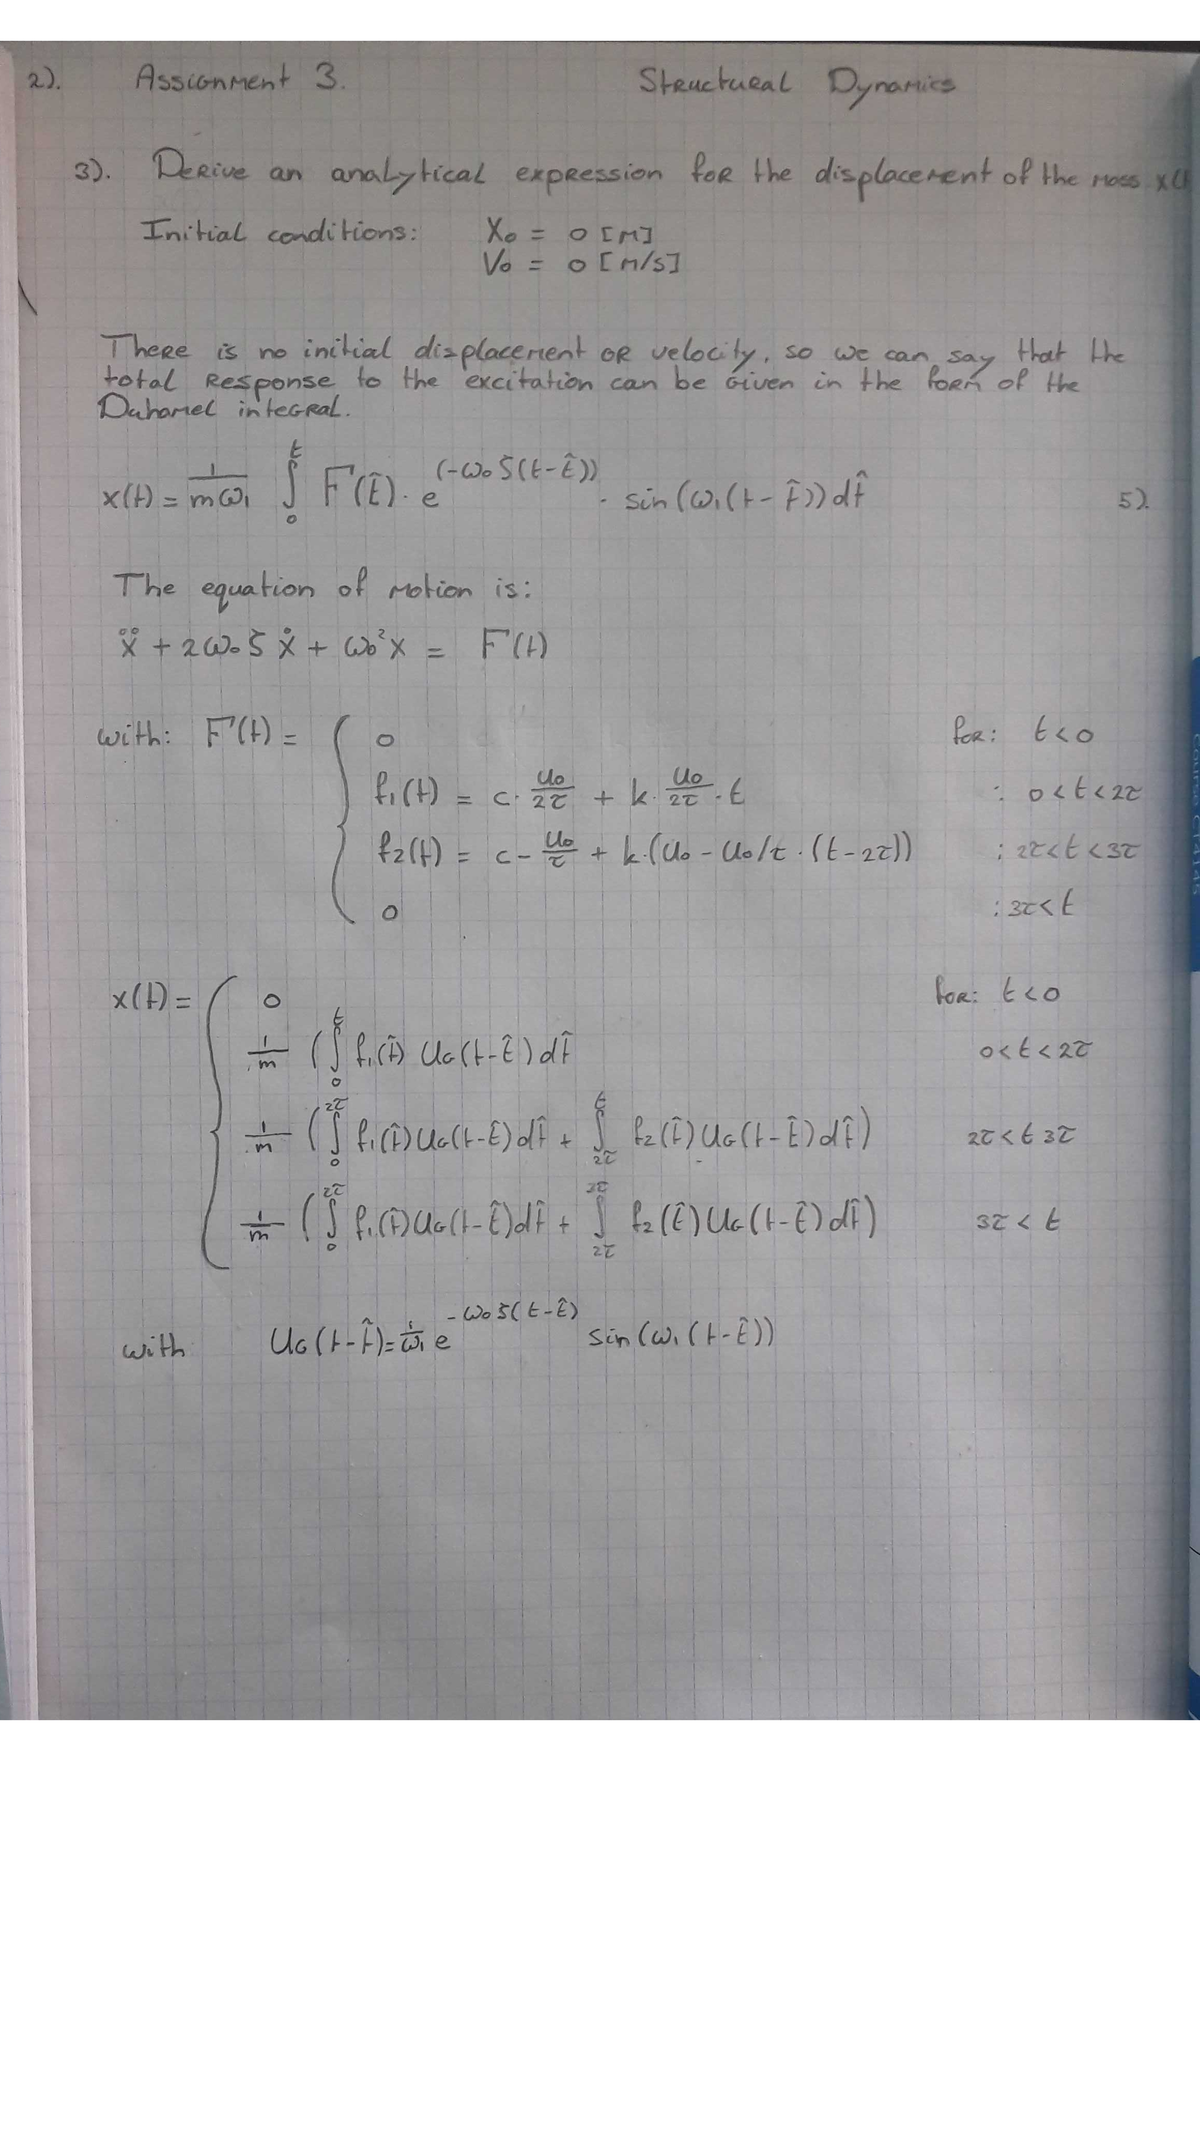 2). Assignment 3. Structural Dynamics
3). Derive an analytical expression for the displacement of the mass x(t
Initial conditions: X₀ = 0 [m]
V₀ = 0 [m/s]
There is no initial displacement or velocity, so we can say that the
total response to the excitation can be given in the form of the
Duhamel integral.
x(t) = 1/(mω₁) ∫₀ᵗ F(t̂) · e^(-ω₀ζ(t-t̂)) · sin(ω₁(t-t̂))dt̂ 5).
The equation of motion is:
ẍ + 2ω₀ζẋ + ω₀²x = F(t)
with: F(t) = { 0 for: t<0
f₁(t) = c·u₀/2τ + k·u₀/2τ·t : 0<t<2τ
f₂(t) = c-u₀/τ + k·(u₀-u₀/τ·(t-2τ)) : 2τ<t<3τ
0 : 3τ<t
x(t) = { 0 for: t<0
1/m (∫₀ᵗ f₁(t̂) u_G(t-t̂)dt̂ 0<t<2τ
1/m (∫₀^2τ f₁(t̂)u_G(t-t̂)dt̂ + ∫_2τ^t f₂(t̂)u_G(t-t̂)dt̂) 2τ<t 3τ
1/m (∫₀^2τ f₁(t̂)u_G(t-t̂)dt̂ + ∫_2τ^3τ f₂(t̂)u_G(t-t̂)dt̂) 3τ<t
with u_G(t-t̂)=1/ω₁ e^-ω₀ζ(t-t̂) sin(ω₁(t-t̂))